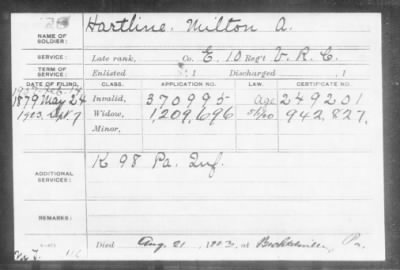 NAME OF SOLDIER: Hartline, Milton A.
SERVICE: Late rank, Co. E. 10 Reg't V. R. C.
TERM OF SERVICE: Enlisted , 1 Discharged , 1
DATE OF FILING. CLASS. APPLICATION NO. LAW. CERTIFICATE NO.
1879 May 24 Invalid, 370995 Age 249201
1903. Sept. 7 Widow, 1,209,696 942,827.
Minor,
ADDITIONAL SERVICES: K 98 Pa. Inf.
REMARKS:
Died Aug. 21, 1903, at Pa.